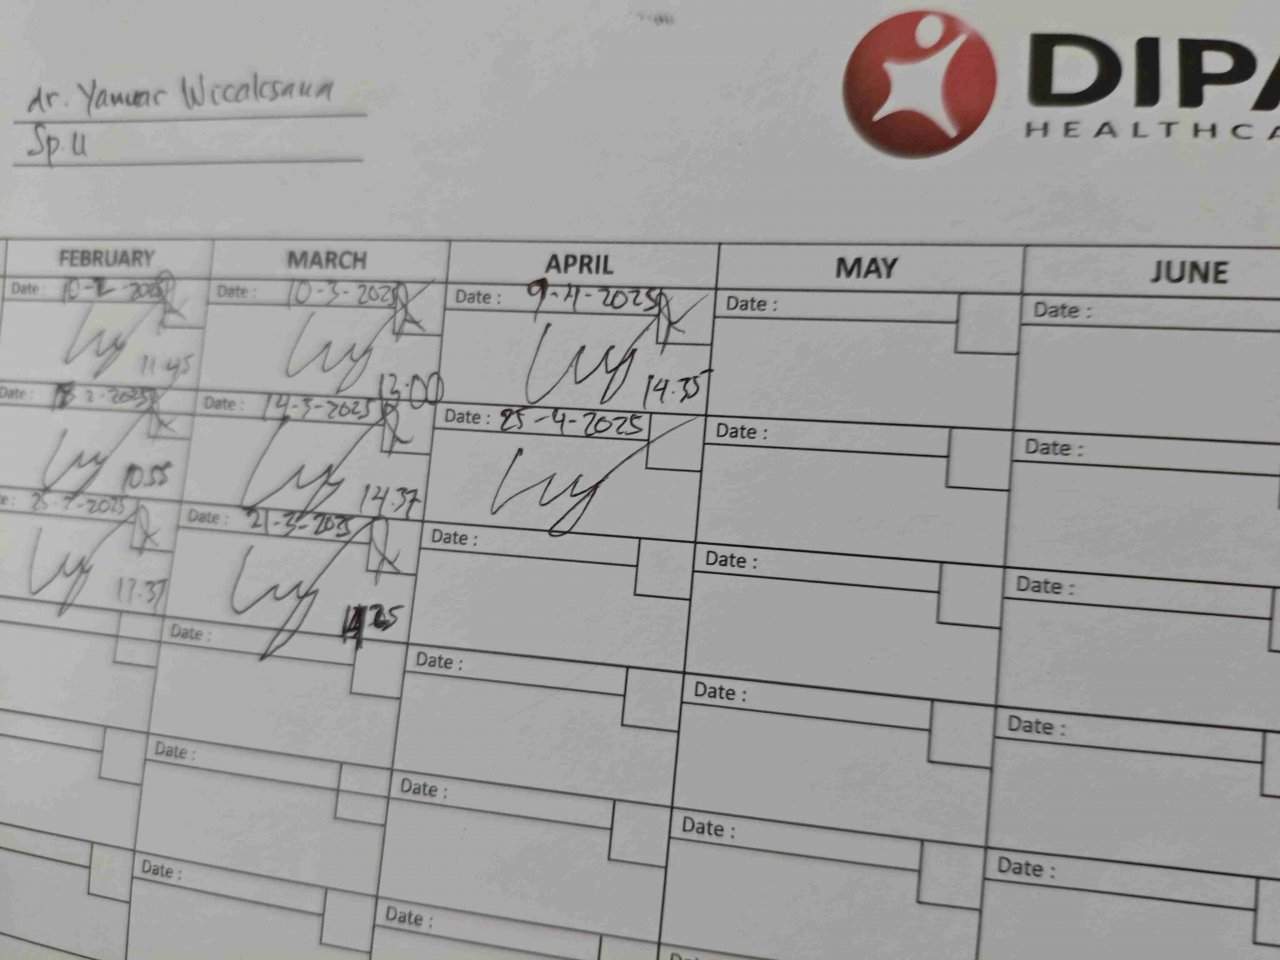 dr. Yanuar
Sp.U
DIPA
HEALTHCA
FEBRUARY MARCH APRIL MAY JUNE
Date : 10-2-2025 Date : 10-3-2025 Date : 9-4-2025 Date : Date :
11.45 13.00 14.35
Date : 2-2025 Date : 14-3-2025 Date : 25-4-2025 Date : Date :
10.55 14.37
25-2-2025 Date : 21-3-2025 Date : Date : Date :
Date : Date : Date : Date :
Date : Date : Date : Date :
Date : Date :